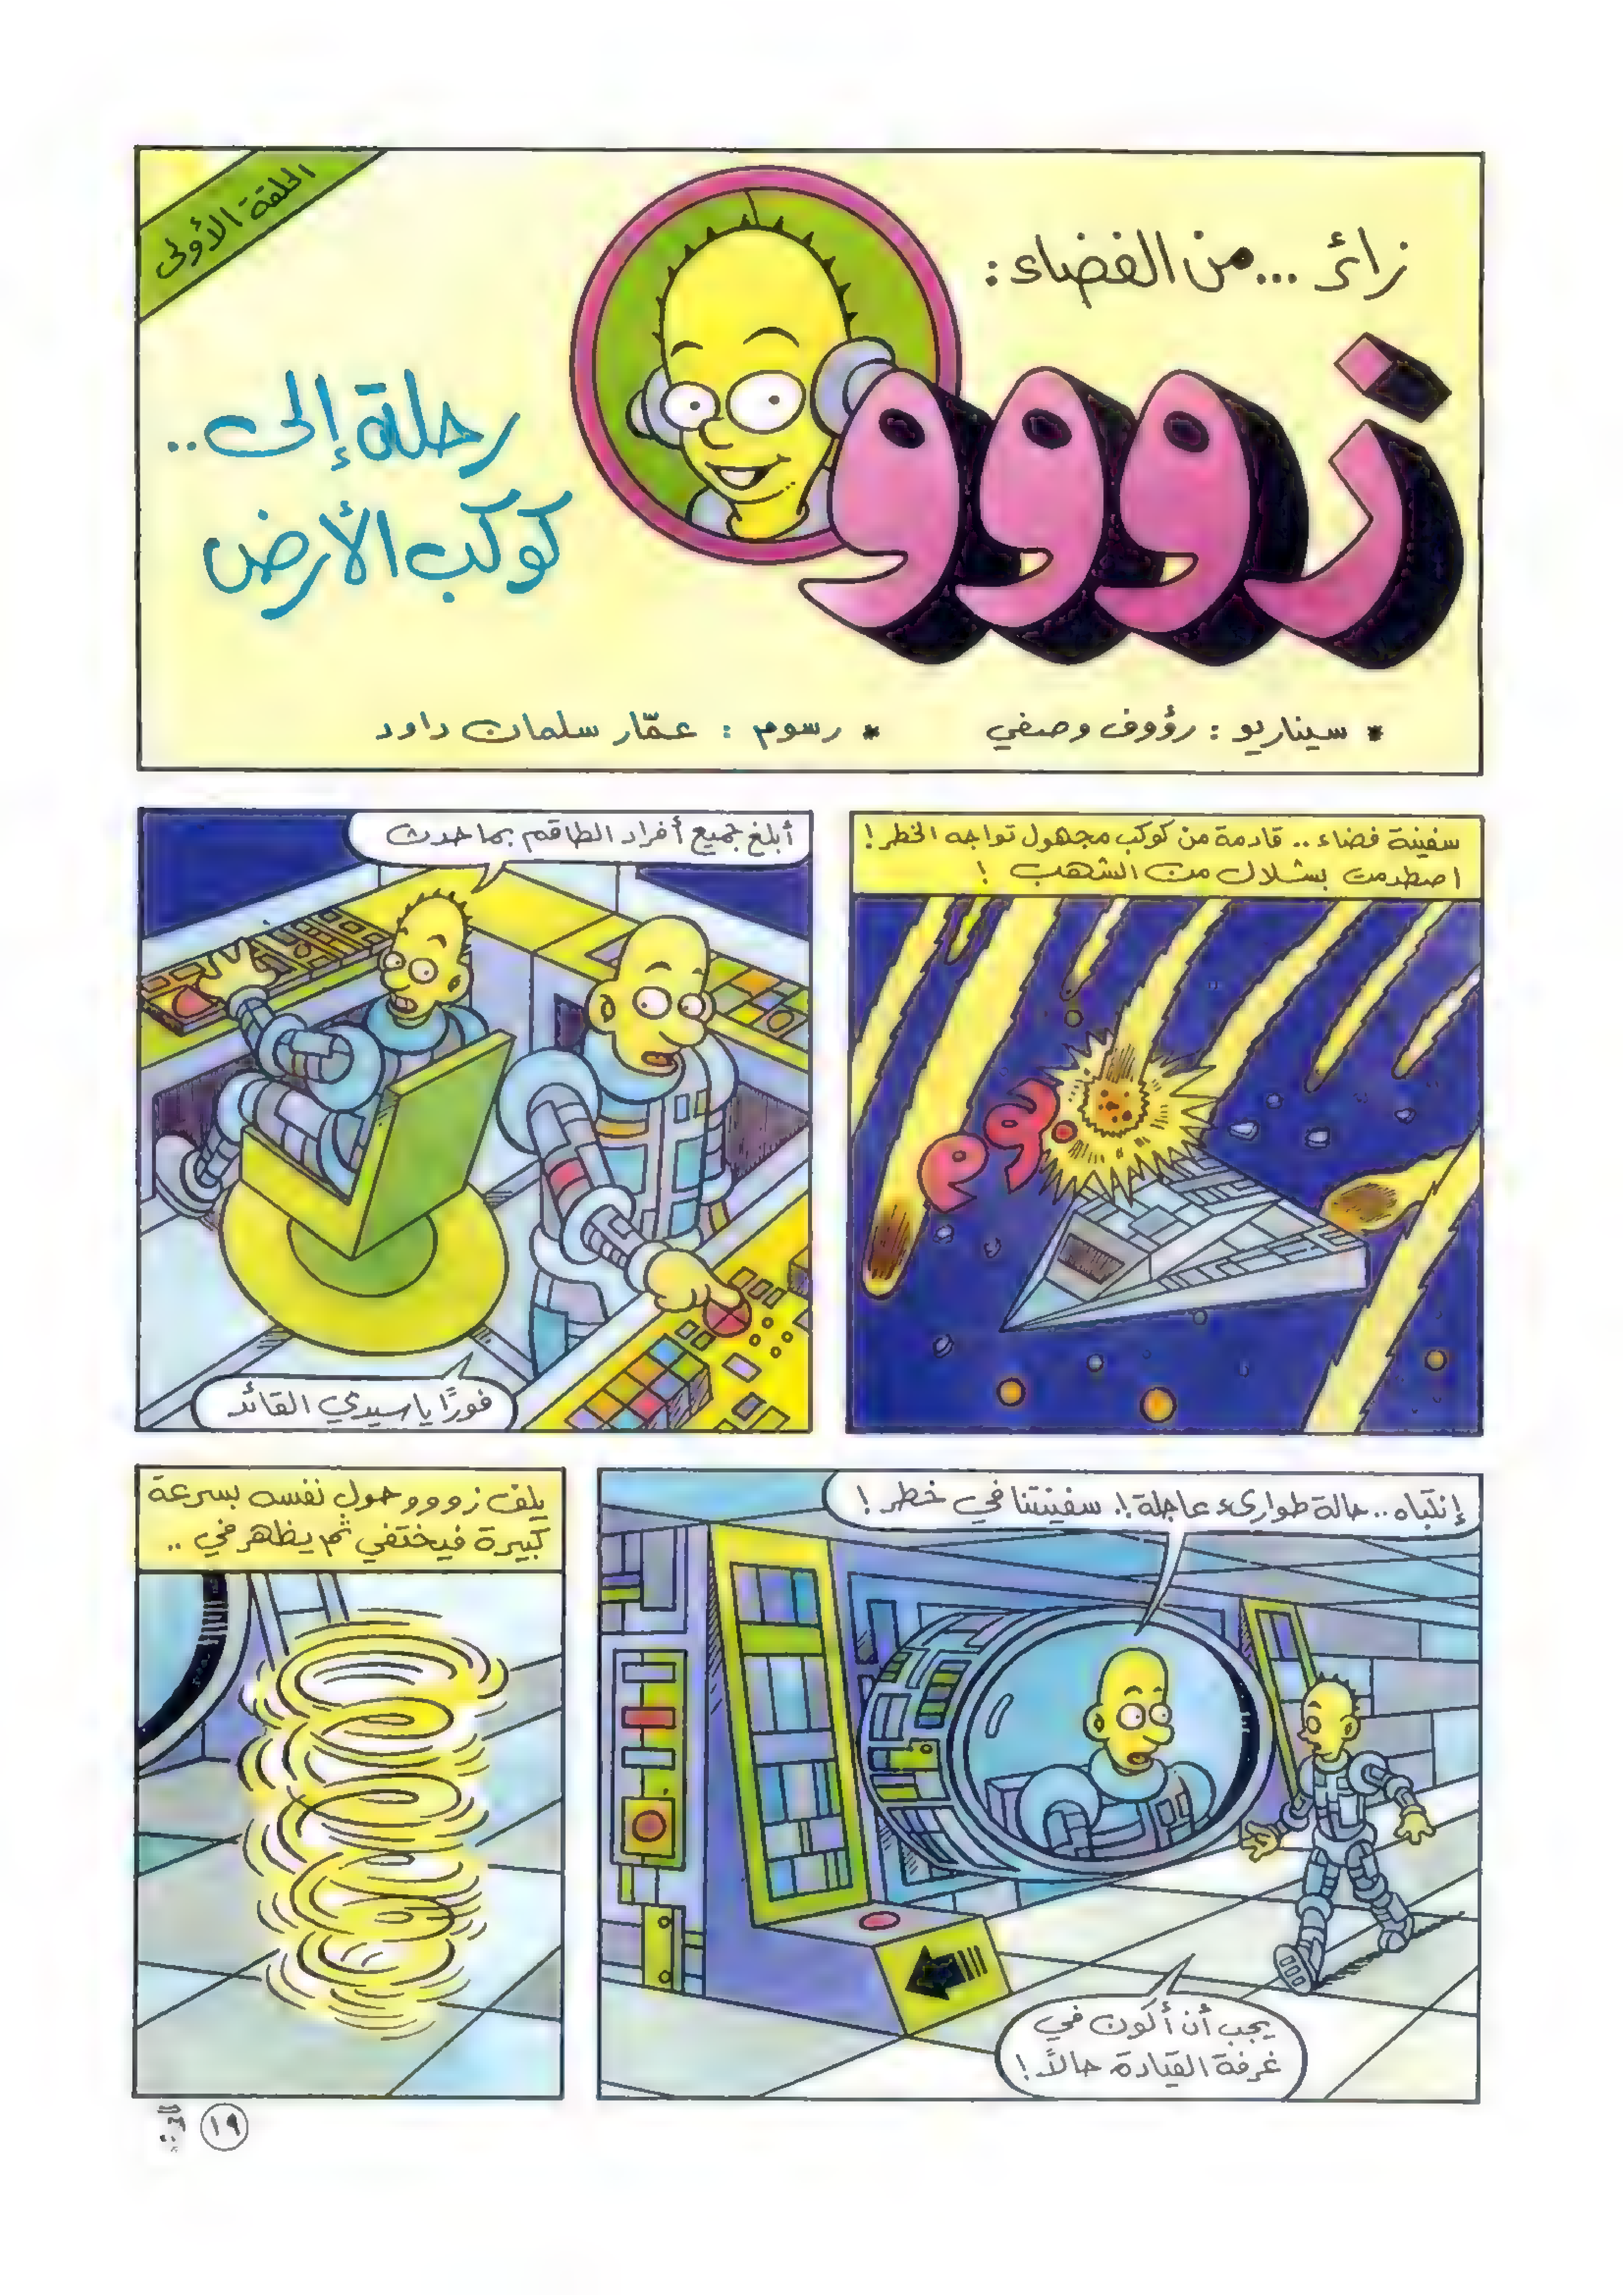 الحلقة الأولى
زائر ...من الفضاء:
زووو
رحلة إلى..
كوكب الأرض
* سيناريو : رؤوف وصفي
* رسوم : عمّار سلمان داود
سفينة فضاء .. قادمة من كوكب مجهول تواجه الخطر!
اصطدمت بشلال من الشهب !
بوم
أبلغ جميع أفراد الطاقم بما حدث
فورًا يا سيدي القائد
إنتباه .. حالة طوارىء عاجلة !. سفينتنا في خطر !
يجب أن أكون في
غرفة القيادة حالاً!
يلف زووو حول نفسه بسرعة
كبيرة فيختفي ثم يظهر في ..
١٩